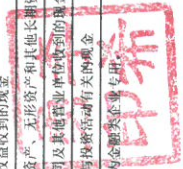 收益收到的现金
资产、无形资产和其他长期资
司及其他营业单位收到的现金
与投资活动有关的现金
为金融类企业专用
印